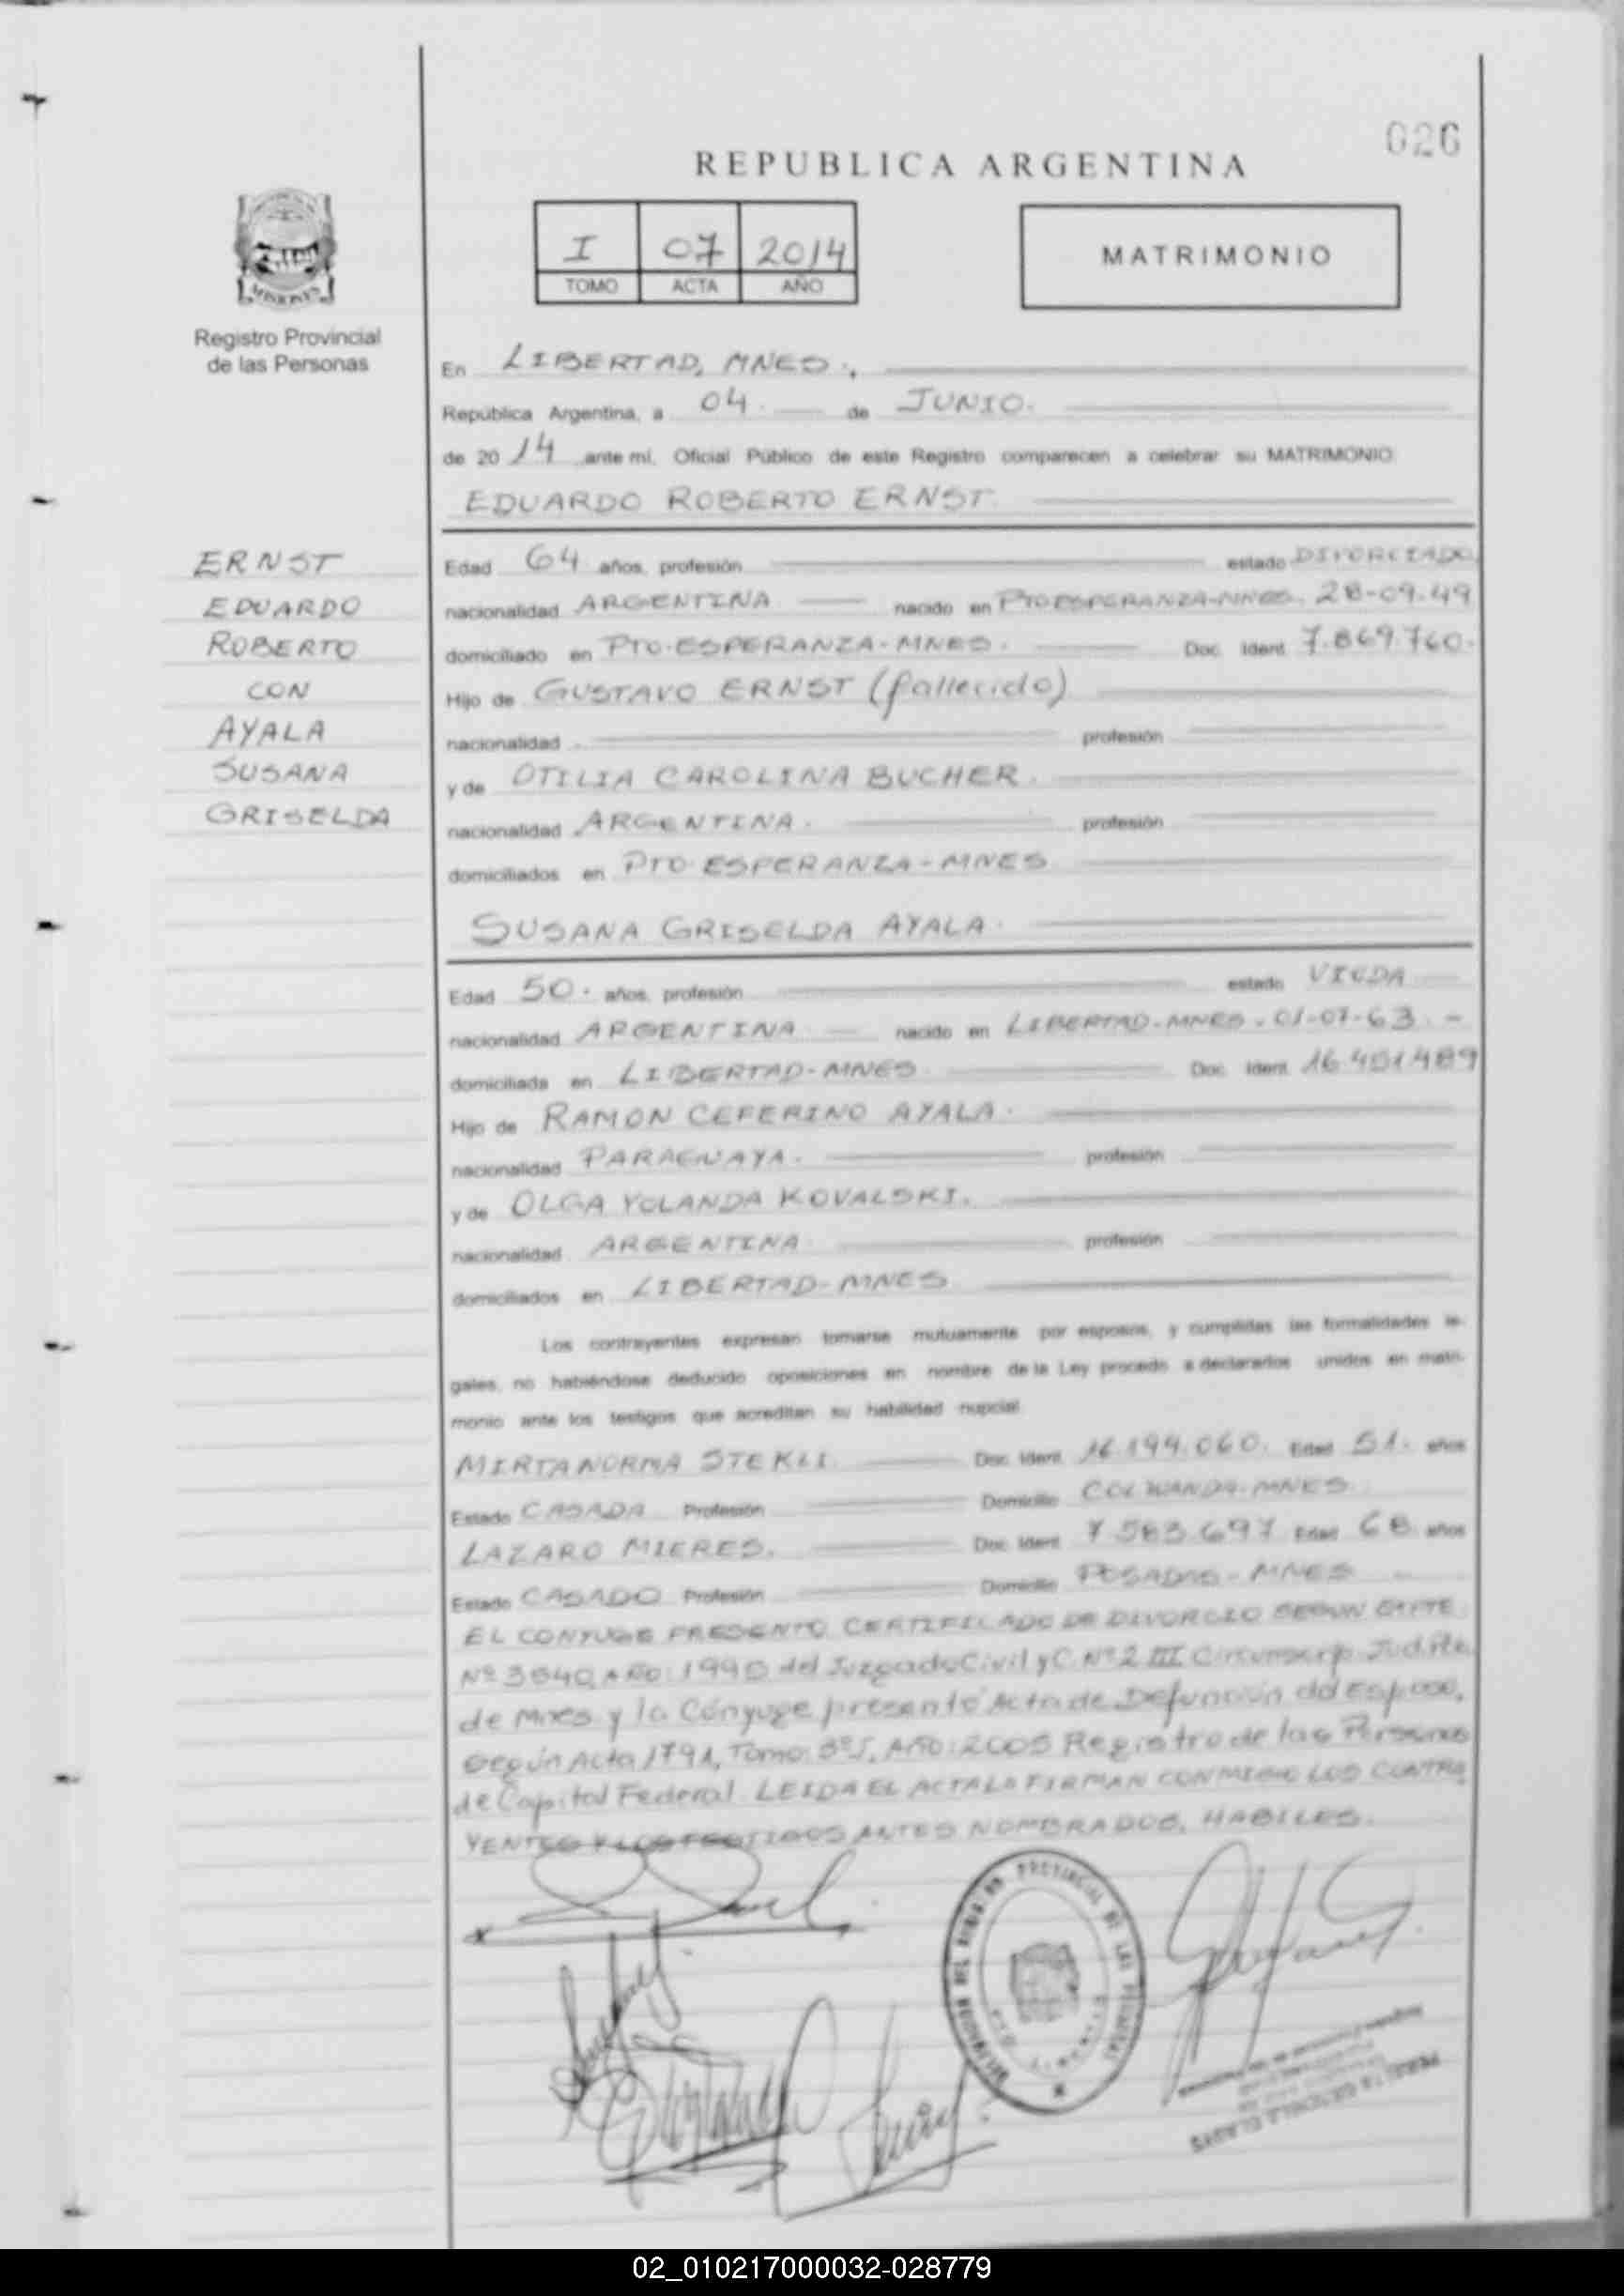 026
REPUBLICA ARGENTINA
I 07 2014
TOMO ACTA AÑO
MATRIMONIO
MISIONES
Registro Provincial
de las Personas
En LIBERTAD, MNES.,
República Argentina, a 04. de JUNIO.
de 2014 ante mí, Oficial Público de este Registro comparecen a celebrar su MATRIMONIO
EDUARDO ROBERTO ERNST.
ERNST
EDUARDO
ROBERTO
CON
AYALA
SUSANA
GRISELDA
Edad 64 años, profesión estado DIVORCIADO
nacionalidad ARGENTINA nacido en PTO ESPERANZA-MNES. 28-09-49
domiciliado en PTO. ESPERANZA-MNES. Doc. Ident. 7.869.760.
Hijo de GUSTAVO ERNST (fallecido)
nacionalidad profesión
y de OTILIA CAROLINA BUCHER.
nacionalidad ARGENTINA. profesión
domiciliados en PTO ESPERANZA-MNES
SUSANA GRISELDA AYALA.
Edad 50. años, profesión estado VIUDA
nacionalidad ARGENTINA nacido en LIBERTAD-MNES. 01-07-63.-
domiciliada en LIBERTAD-MNES. Doc. Ident. 16.451.489
Hijo de RAMON CEFERINO AYALA.
nacionalidad PARAGUAYA. profesión
y de OLGA YOLANDA KOVALSKI.
nacionalidad ARGENTINA profesión
domiciliados en LIBERTAD-MNES
Los contrayentes expresan tomarse mutuamente por esposos, y cumplidas las formalidades le-
gales, no habiéndose deducido oposiciones en nombre de la Ley procedo a declararlos unidos en matri-
monio ante los testigos que acreditan su habilidad nupcial
MIRTA NORMA STEKLI. Doc. Ident. 16.194.060. Edad 51. años
Estado CASADA Profesión Domicilio COL WANDA-MNES.
LAZARO MIERES. Doc. Ident. 7.583.697 Edad 68 años
Estado CASADO Profesión Domicilio POSADAS-MNES
EL CONYUGE PRESENTO CERTIFICADO DE DIVORCIO SEGUN EXPTE
Nº 3640, AÑO: 1995 del Juzgado Civil y C. Nº 2 III Circunscrip. Jud.
de Mnes y la Cónyuge presentó Acta de Defunción del Esposo,
según Acta 1791, Tomo: Año: 2005 Registro de las Personas
de Capital Federal. LEIDA EL ACTA LA FIRMAN CONMIGO LOS CONTRA
YENTES Y LOS TESTIGOS ANTES NOMBRADOS, HABILES.
PROVINCIAL DE LAS PERSONAS
02_010217000032-028779